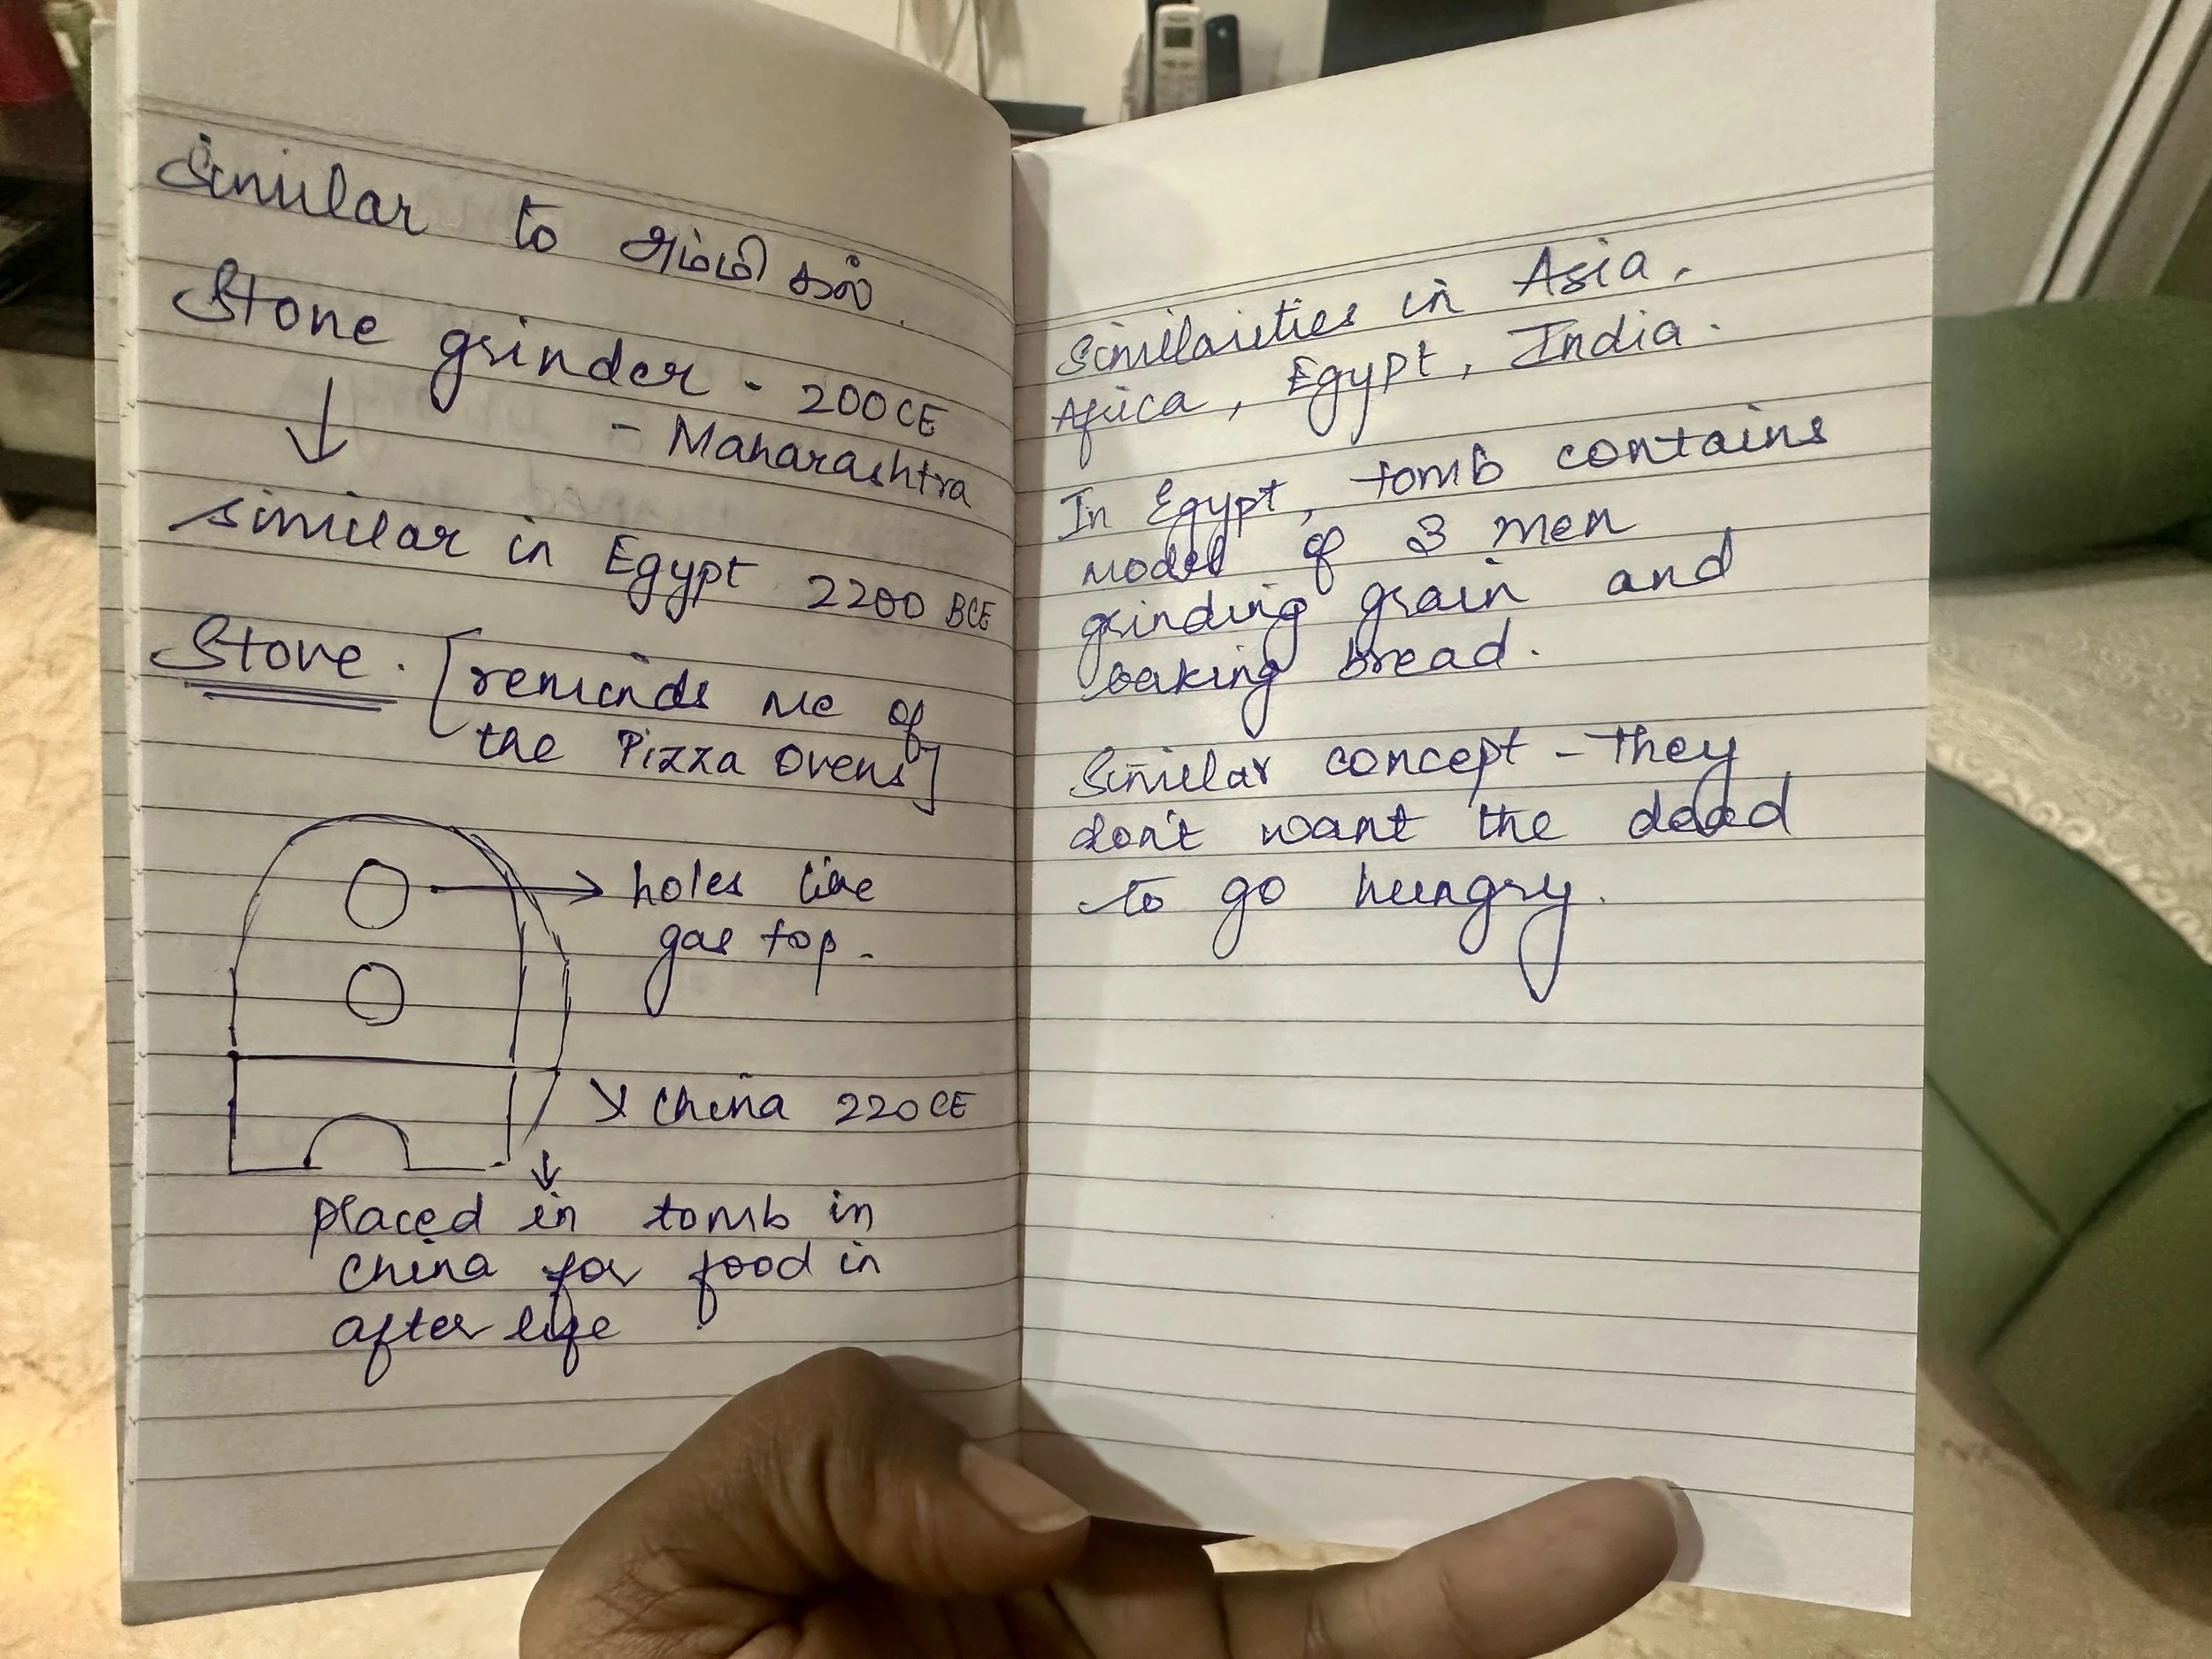 Similar to அம்மி கல்.
Stone grinder - 200CE
- Maharashtra
similar in Egypt 2200 BCE
Stove. [reminds me of
the Pizza Ovens]
holes like
gas top.
China 220CE
placed in tomb in
China for food in
after life
Similarities in Asia,
Africa, Egypt, India.
In Egypt, tomb contains
model of 3 men
grinding grain and
baking bread.
Similar concept - They
don't want the dead
to go hungry.